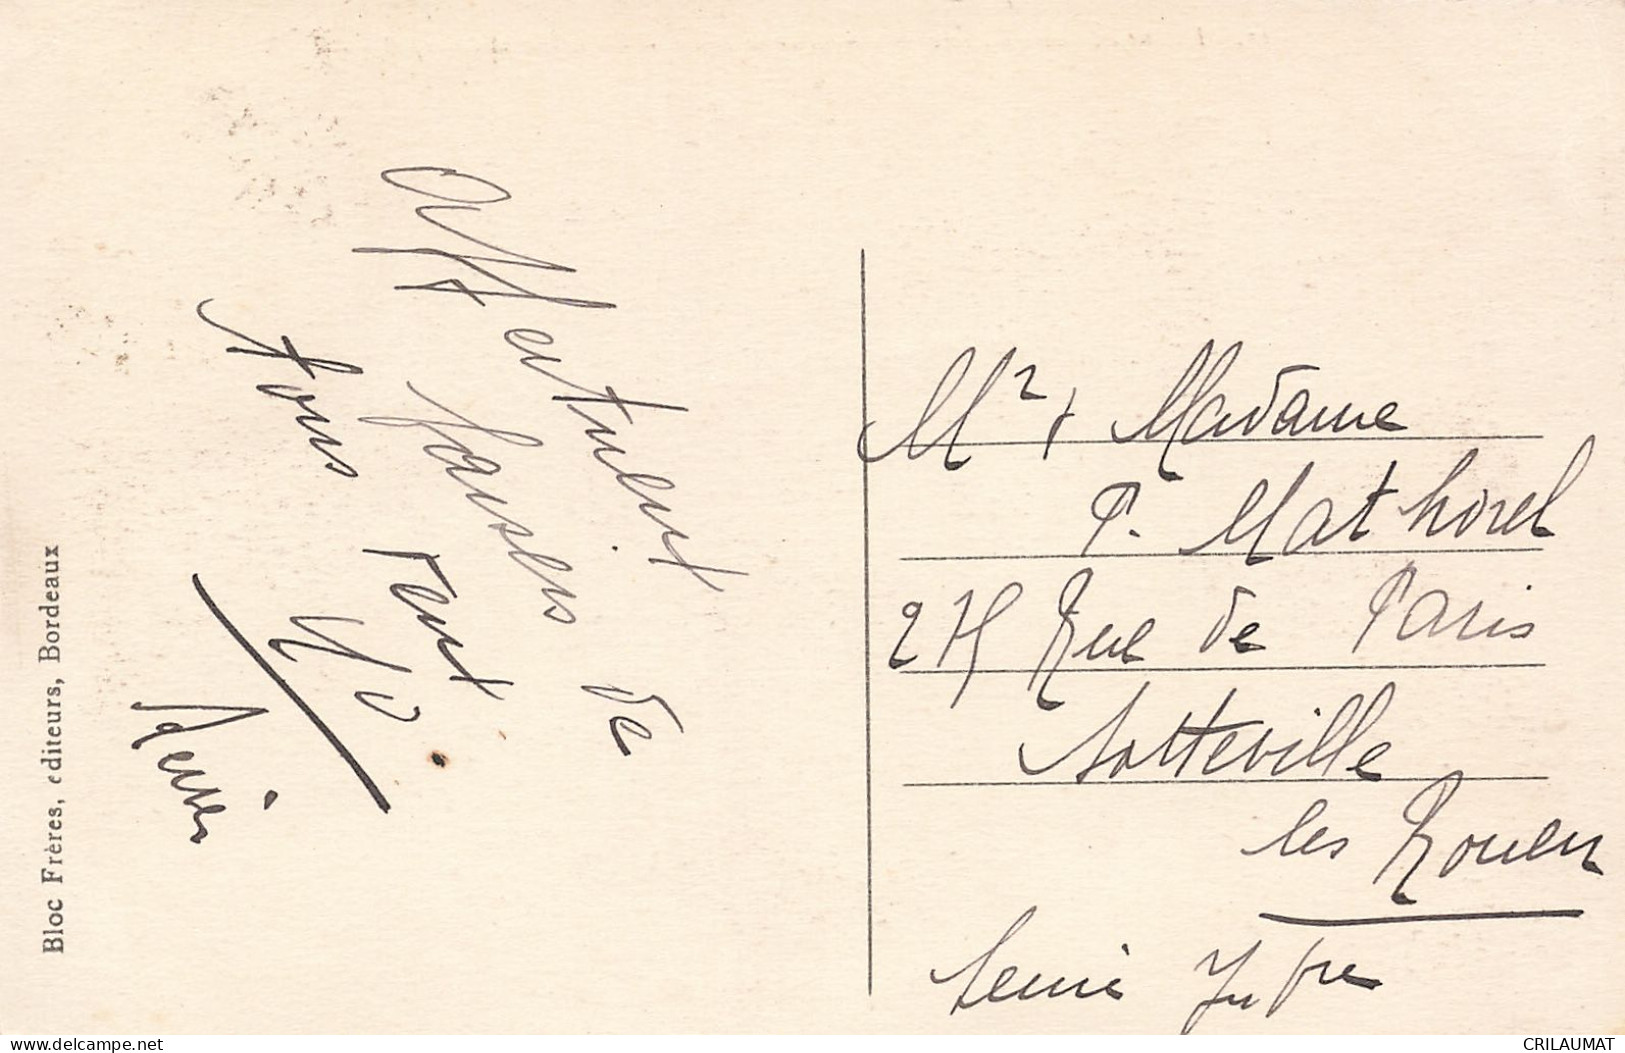 Affectueux
baisers de
tous
Bloc Frères, éditeurs, Bordeaux
Mr + Madame
P. Mathorel
Rue de Paris
Sotteville
les Rouen
Seine Infre
CRILAUMAT